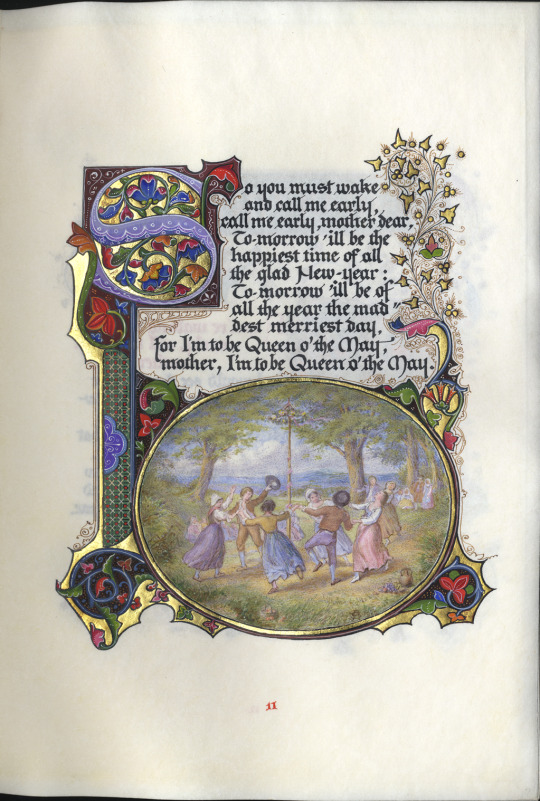 So you must wake
and call me early,
call me early, mother dear,
To-morrow 'ill be the
happiest time of all
the glad New-year:
To-morrow 'ill be of
all the year the mad"
dest merriest day,
for I'm to be Queen o' the May,
mother, I'm to be Queen o' the May.
11